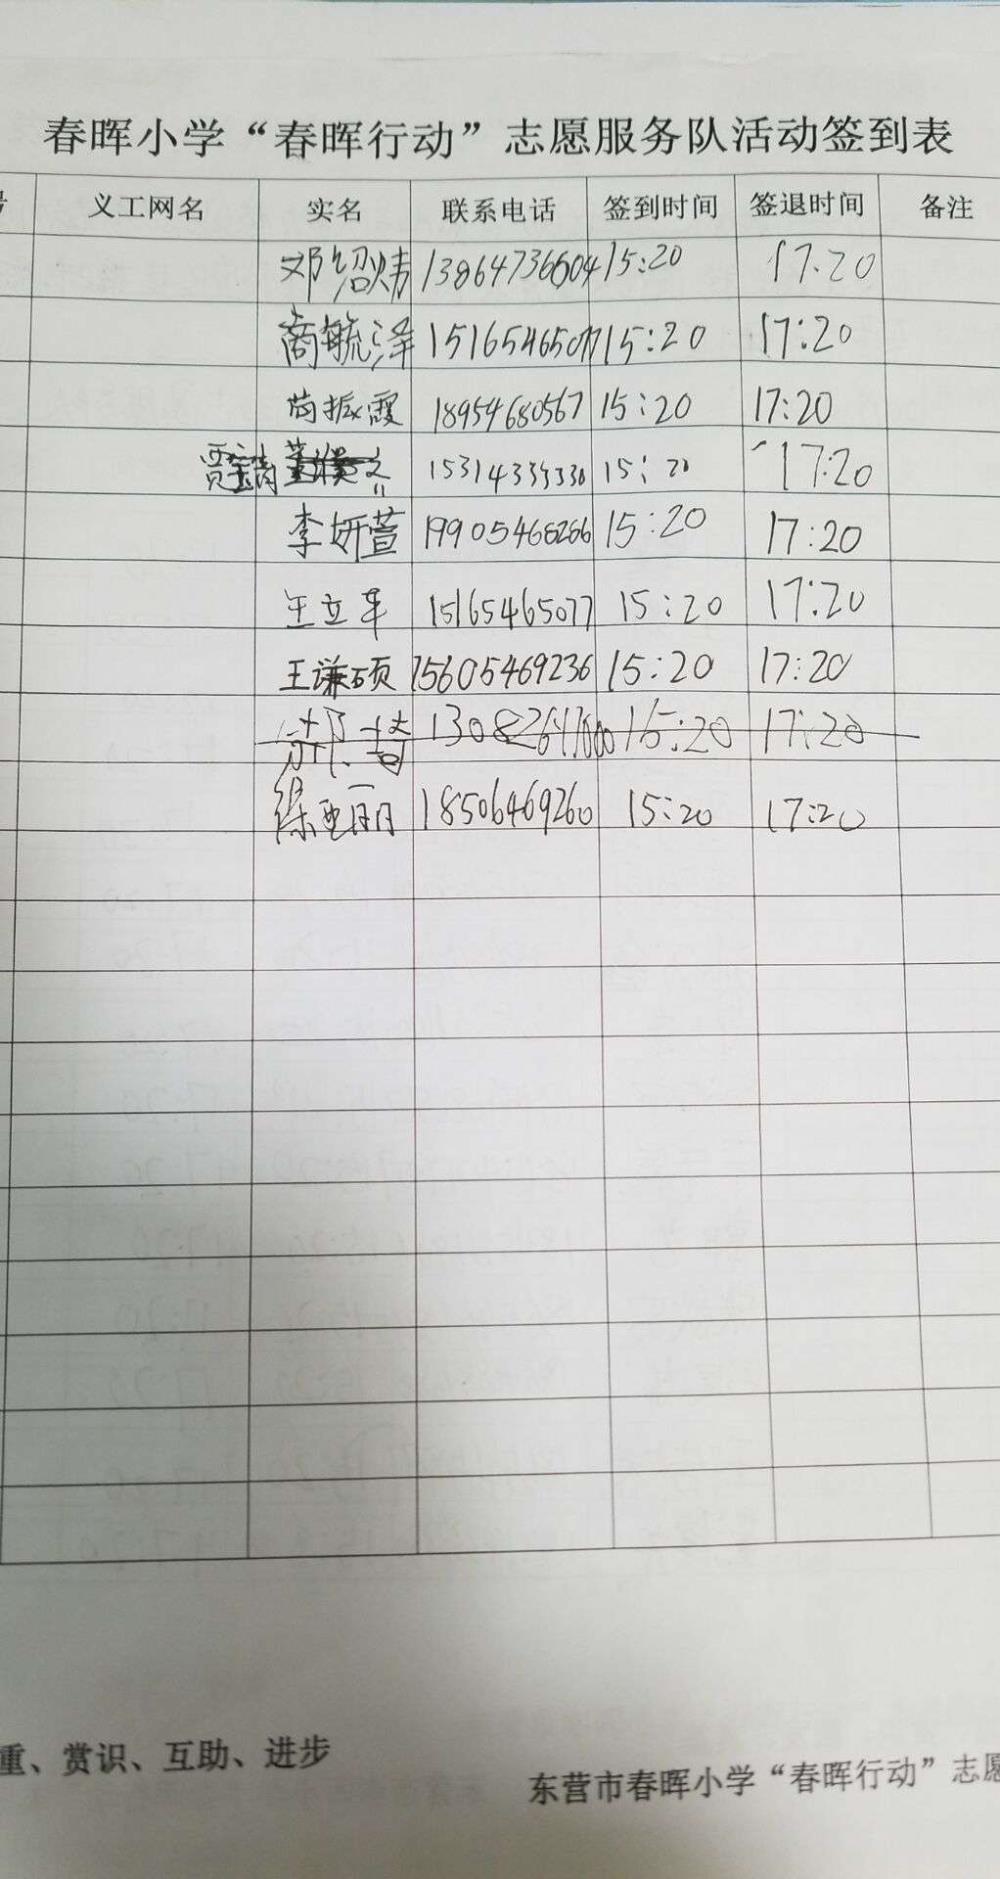 春晖小学“春晖行动”志愿服务队活动签到表
号 义工网名 实名 联系电话 签到时间 签退时间 备注
邓绍炜 13864736604 15:20 17:20
商毓泽 15165465077 15:20 17:20
尚振霞 18954680567 15:20 17:20
贾 15314333330 15:20 17:20
李妍萱 19905468266 15:20 17:20
王立军 15165465077 15:20 17:20
王谦硕 15605469236 15:20 17:20
15:20 17:20
徐亚丽 18506469260 15:20 17:20
重、赏识、互助、进步
东营市春晖小学“春晖行动”志愿